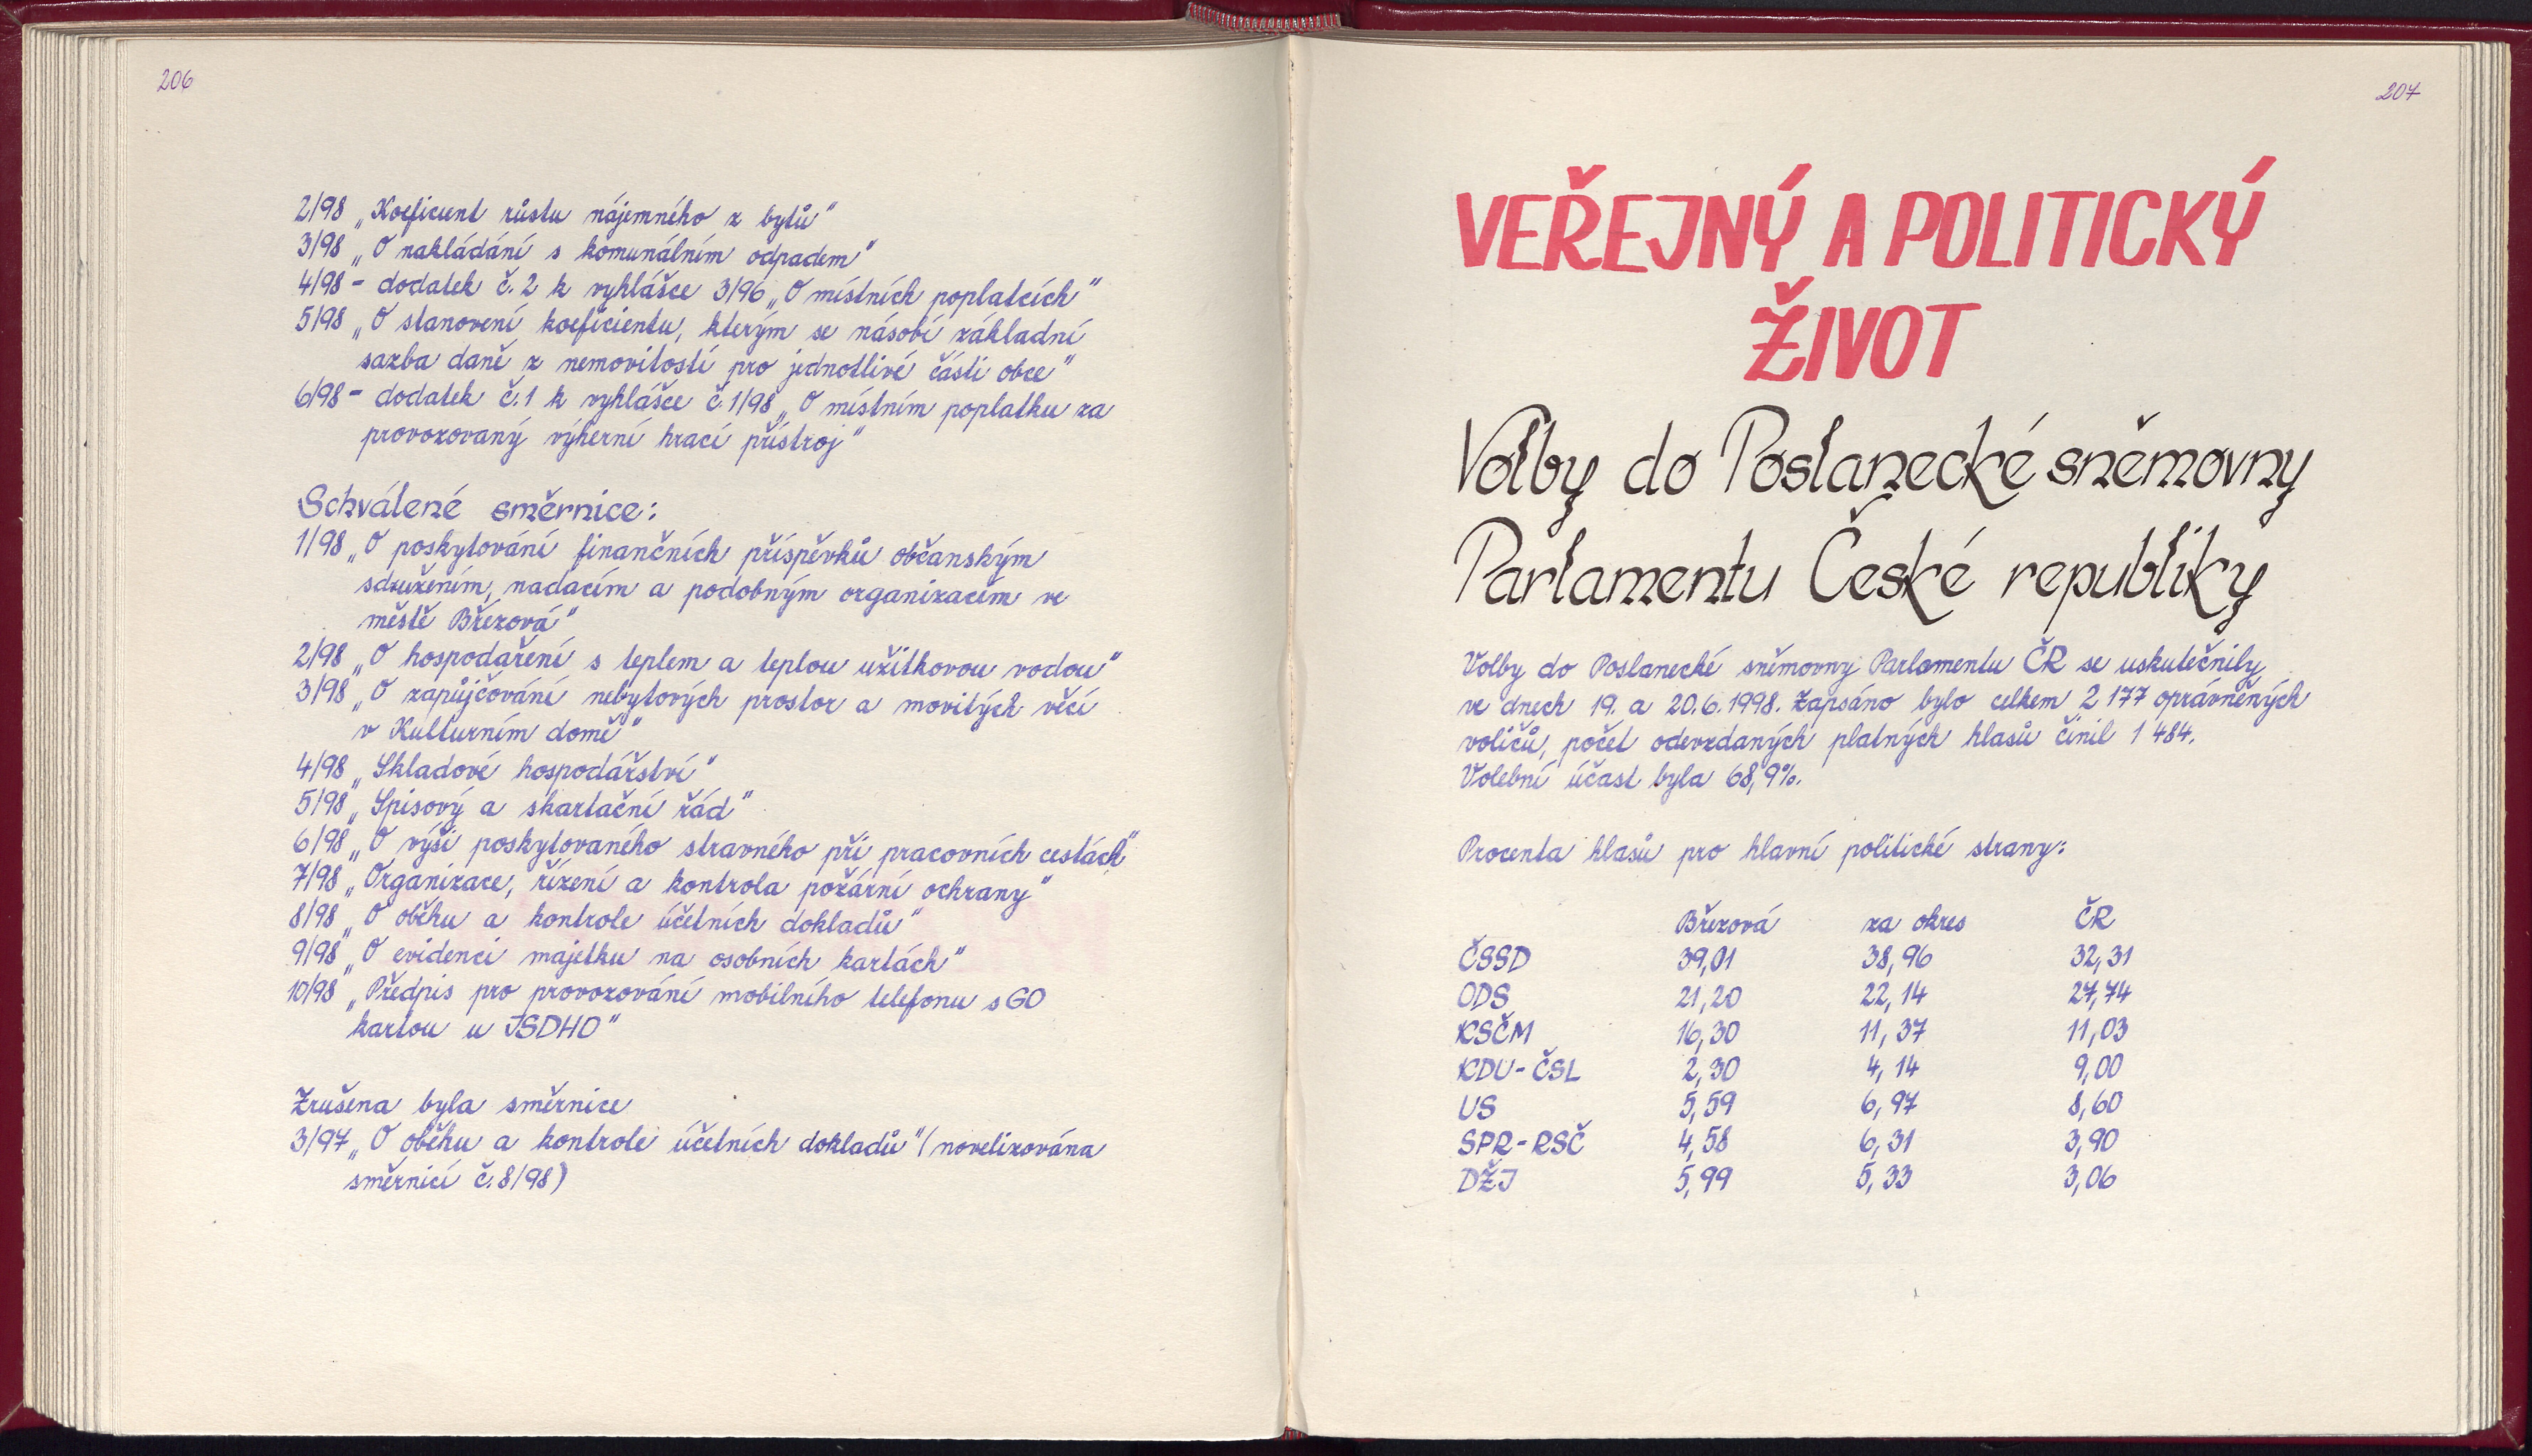 206
2/98 „Koeficient růstu nájemného z bytů"
3/98 „O nakládání s komunálním odpadem"
4/98 - dodatek č. 2 k vyhlášce 3/96 „O místních poplatcích"
5/98 „O stanovení koeficientu, kterým se násobí základní
sazba daně z nemovitostí pro jednotlivé části obce"
6/98 - dodatek č. 1 k vyhlášce č. 1/98 „O místním poplatku za
provozovaný výherní hrací přístroj"
Schválené směrnice:
1/98 „O poskytování finančních příspěvků občanským
sdružením, nadacím a podobným organizacím ve
městě Březová"
2/98 „O hospodaření s teplem a teplou užitkovou vodou"
3/98 „O zapůjčování nebytových prostor a movitých věcí
v Kulturním domě"
4/98 „Skladové hospodářství"
5/98 „Spisový a skartační řád"
6/98 „O výši poskytovaného stravného při pracovních cestách"
7/98 „Organizace, řízení a kontrola požární ochrany"
8/98 „O oběhu a kontrole účetních dokladů"
9/98 „O evidenci majetku na osobních kartách"
10/98 „Předpis pro provozování mobilního telefonu s GO
kartou u JSDHO"
Zrušena byla směrnice
3/97 „O oběhu a kontrole účetních dokladů" (novelizována
směrnicí č. 8/98)
207
VEŘEJNÝ A POLITICKÝ
ŽIVOT
Volby do Poslanecké sněmovny
Parlamentu České republiky
Volby do Poslanecké sněmovny Parlamentu ČR se uskutečnily
ve dnech 19. a 20. 6. 1998. Zapsáno bylo celkem 2 177 oprávněných
voličů, počet odevzdaných platných hlasů činil 1 484.
Volební účast byla 68,9%.
Procenta hlasů pro hlavní politické strany:
Březová za okres ČR
ČSSD 39,01 38,96 32,31
ODS 21,20 22,14 27,74
KSČM 16,30 11,37 11,03
KDU-ČSL 2,30 4,14 9,00
US 5,59 6,97 8,60
SPR-RSČ 4,58 6,31 3,90
DŽJ 5,99 5,33 3,06